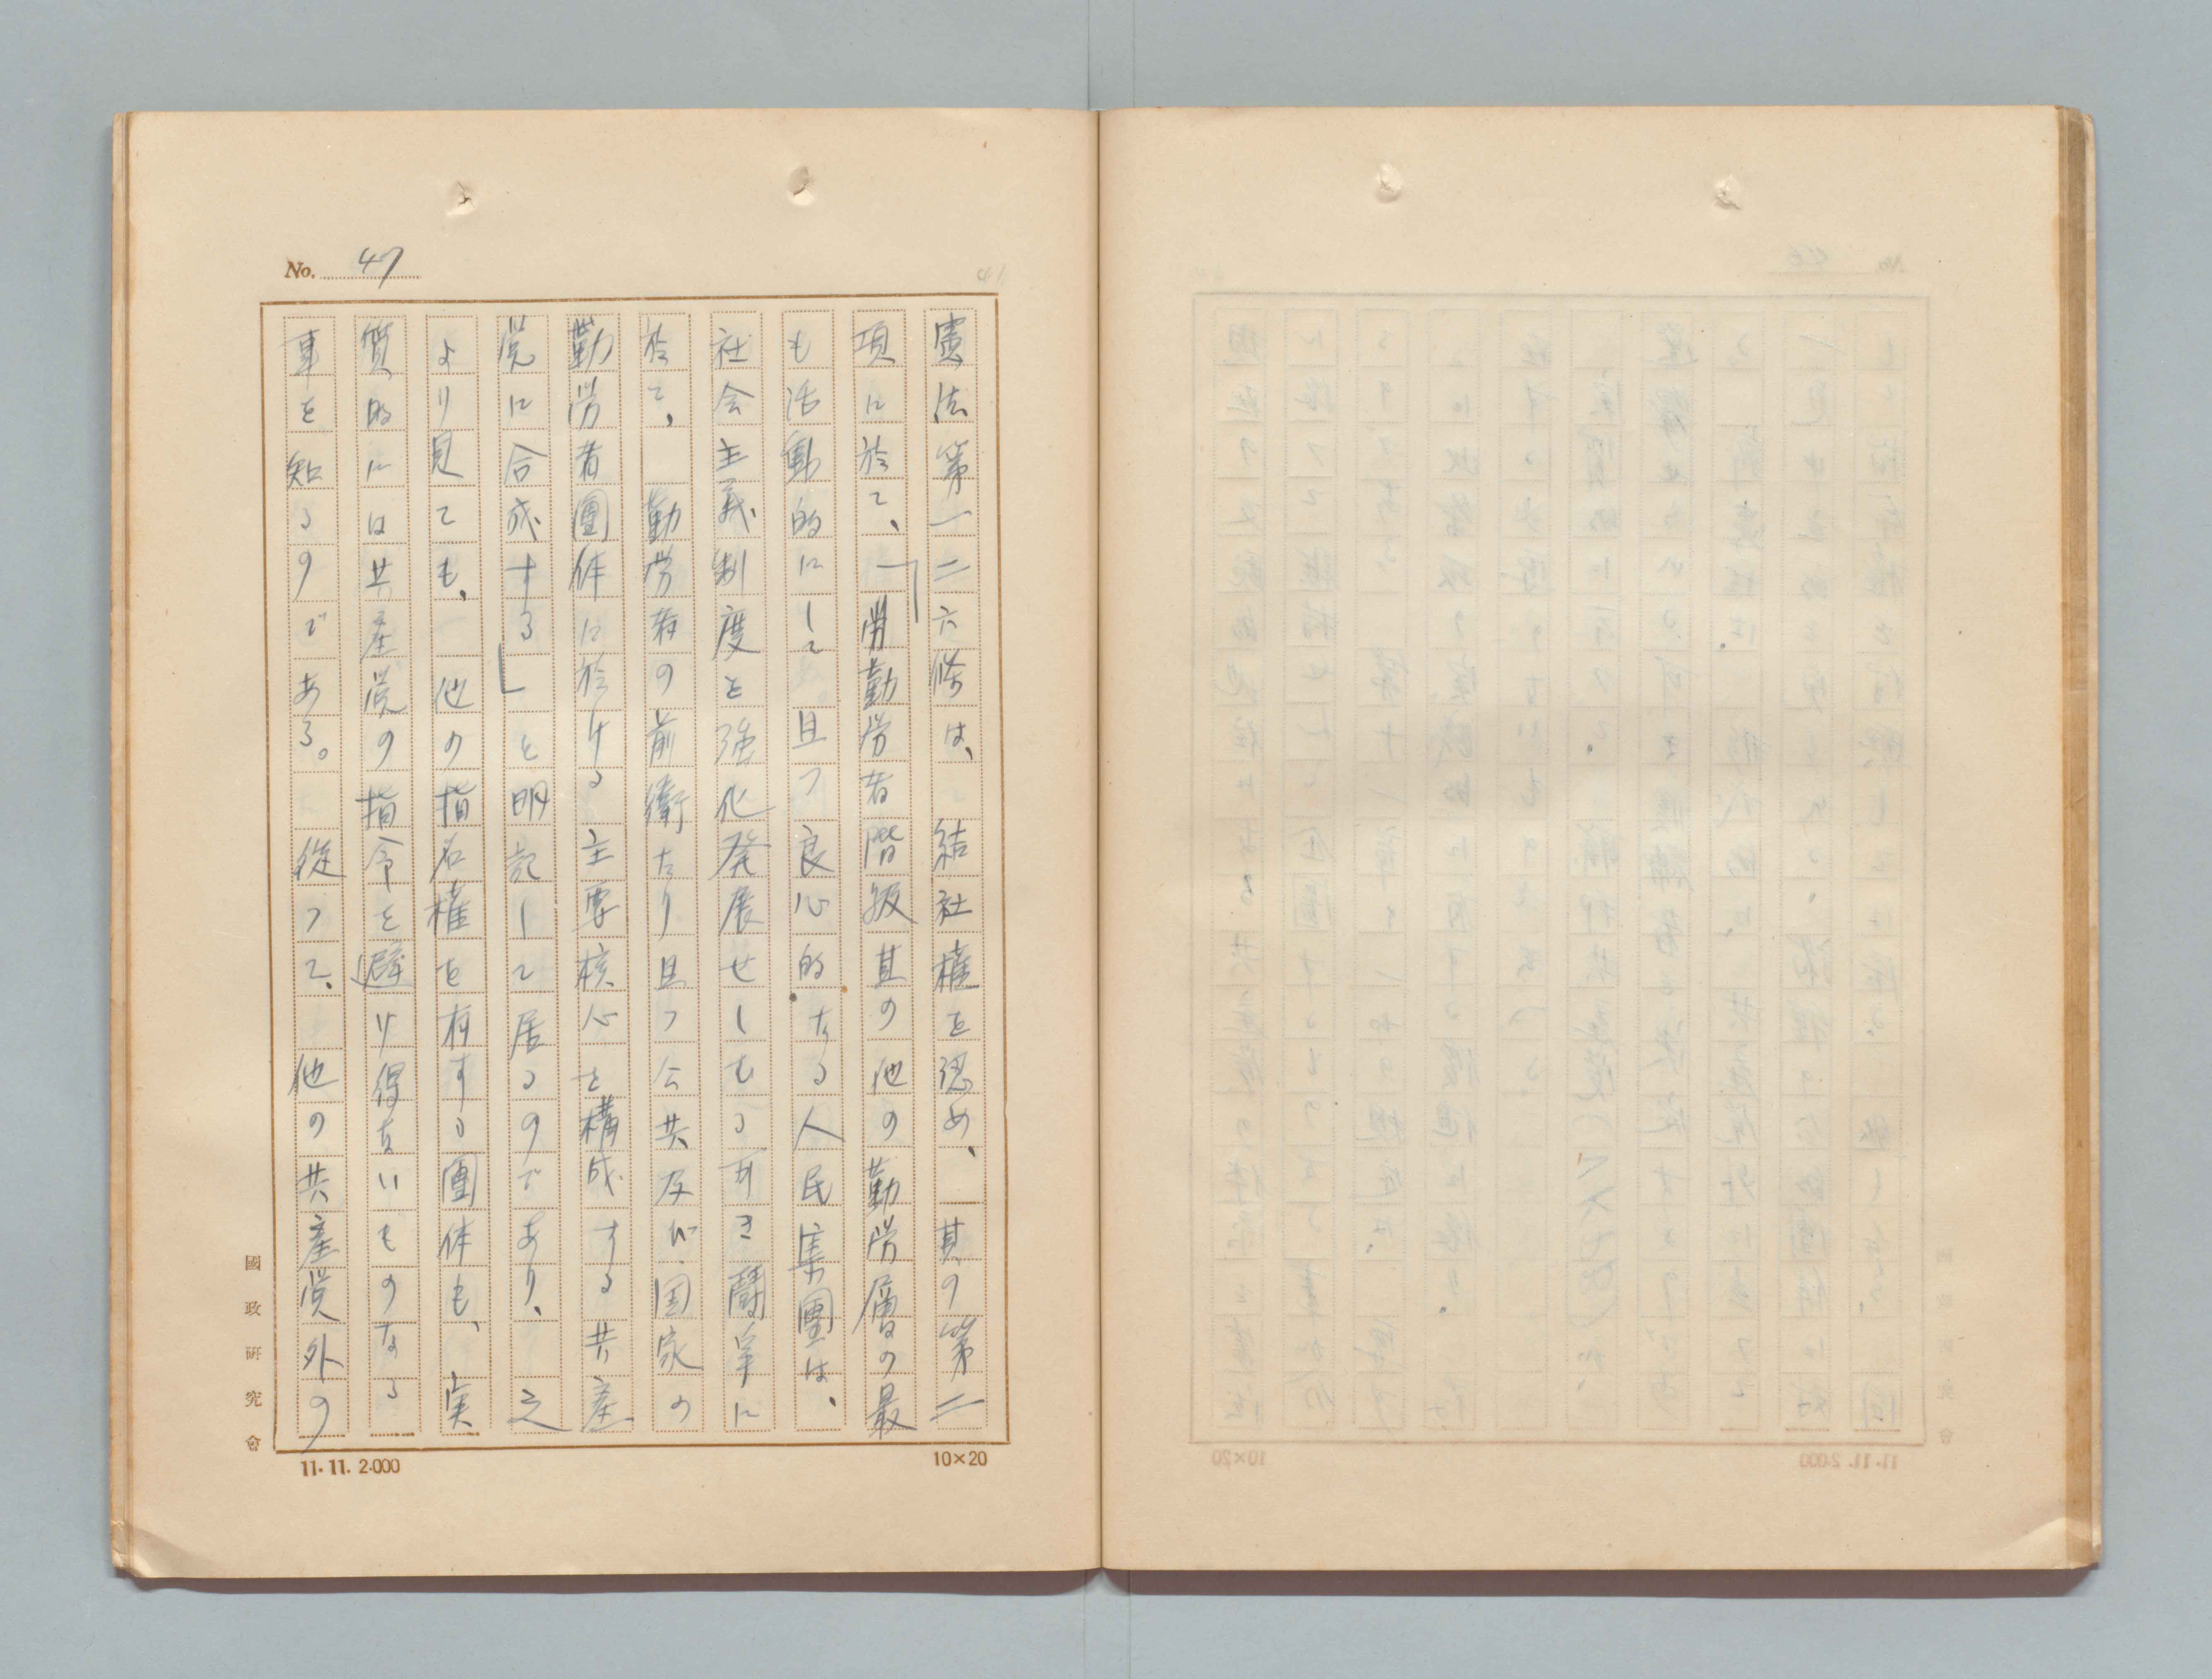 No. 47
憲法第一二六條は、結社権を認め、其の第二
項に於て、「労勤労者階級其の他の勤労層の最
も活動的にして且つ良心的なる人民集團は、
社会主義制度を強化発展せしむる可き闘争に
於て、勤労者の前衛たり且つ公共及び国家の
勤労者團体に於ける主要核心を構成する共産
党に合成する」と明記して居るのであり、之
より見ても、他の指名権を有する團体も、実
質的には共産党の指令を避け得ないものなる
事を知るのである。従つて、他の共産党外の
國政研究會
11.11.2.000
10×20